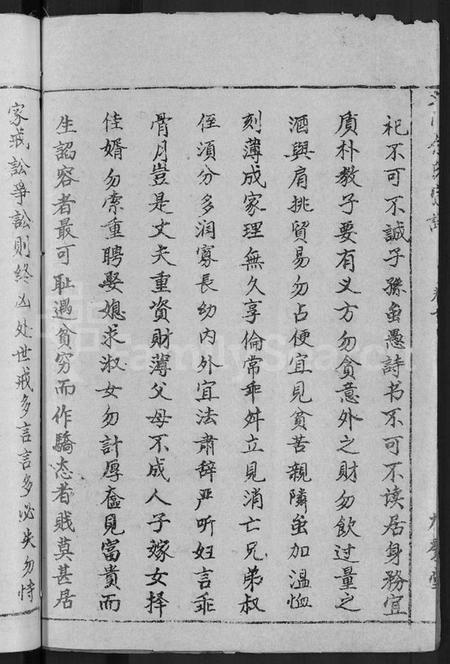 祀不可不誠子孫虽愚詩书不可不读居身務宜
质朴教子要有义方勿貪意外之财勿飲过量之
酒與肩挑貿易勿占便宜見貧苦親隣虽加温恤
刻薄成家理無久享倫常乖舛立見消亡兄弟叔
侄須分多润寡長幼内外宜法肃辞严听妇言乖
骨月豈是丈夫重資財薄父母不成人子嫁女择
佳婿勿索重聘娶媳求淑女勿計厚奩見富貴而
生諂容者最可耻遇貧穷而作驕态者贱莫甚居
家戒訟爭訟則终凶处世戒多言言多必失勿恃
FamilySearch